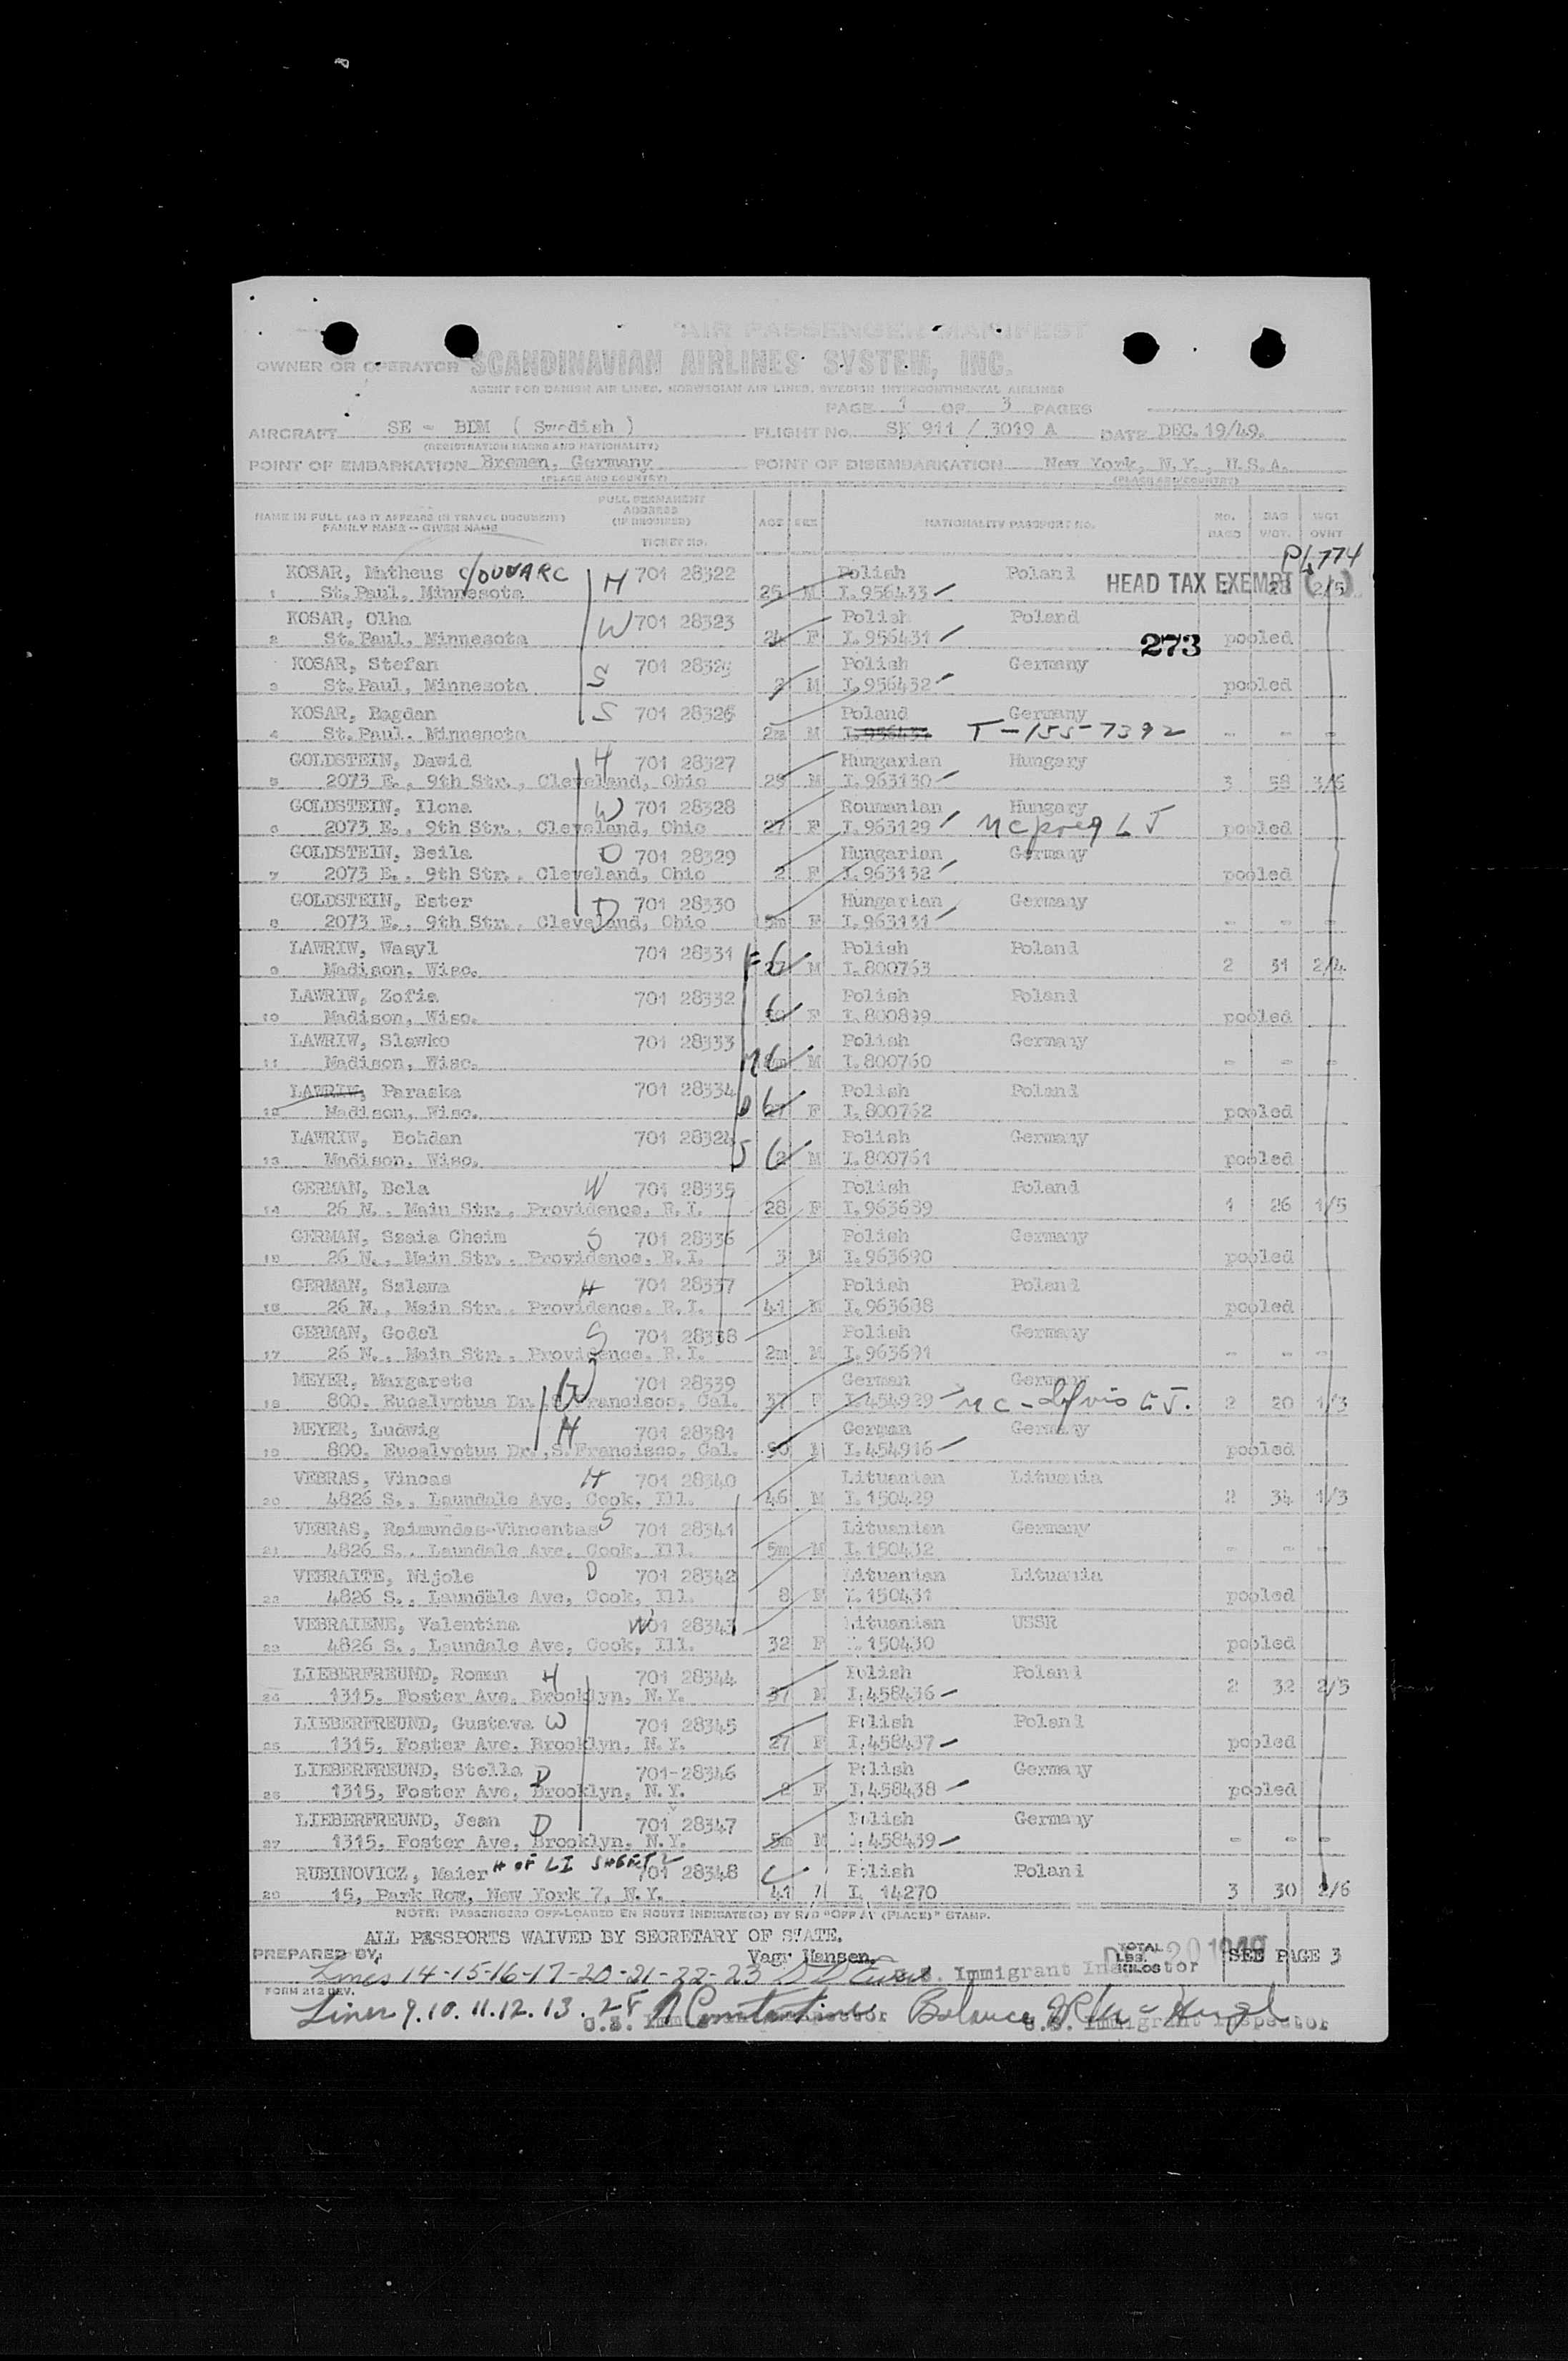 AIR PASSENGER MANIFEST
OWNER OR OPERATOR SCANDINAVIAN AIRLINES SYSTEM, INC.
AGENT FOR DANISH AIR LINES, NORWEGIAN AIR LINES, SWEDISH INTERCONTINENTAL AIRLINES
PAGE 1 OF 3 PAGES
AIRCRAFT SE - BDM ( Swedish ) FLIGHT No. SK 911 / 3019 A DATE DEC. 19/49.
(REGISTRATION MARKS AND NATIONALITY)
POINT OF EMBARKATION Bremen, Germany POINT OF DISEMBARKATION New York, N.Y., U.S.A.
(PLACE AND COUNTRY) (PLACE AND COUNTRY)
NAME IN FULL (AS IT APPEARS IN TRAVEL DOCUMENT) FAMILY NAME -- GIVEN NAME FULL PERMANENT ADDRESS (IF REQUIRED) TICKET No. AGE SEX NATIONALITY PASSPORT NO. No. BAGS BAG WGT. WGT OVHT
P4774
KOSAR, Matheus H 701 28322 Polish Poland HEAD TAX EXEMPT ( )
1 St. Paul, Minnesota 25 M I.956433 28 2/5
KOSAR, Olha W 701 28323 Polish Poland
2 St. Paul, Minnesota 24 F I.956431 273 pooled
KOSAR, Stefan S 701 28325 Polish Germany
3 St. Paul, Minnesota 2 M I.956432 pooled
KOSAR, Bogdan S 701 28326 Poland Germany
4 St. Paul. Minnesota 2m M T-155-7392 - - -
GOLDSTEIN, Dawid H 701 28327 Hungarian Hungary
5 2073 E., 9th Str., Cleveland, Ohio 29 M I.963130 3 58 3/6
GOLDSTEIN, Ilona W 701 28328 Roumanian Hungary
6 2073 E., 9th Str., Cleveland, Ohio 27 F I.963129 MC preg L J pooled
GOLDSTEIN, Beila D 701 28329 Hungarian Germany
7 2073 E., 9th Str., Cleveland, Ohio 2 F I.963132 pooled
GOLDSTEIN, Ester D 701 28330 Hungarian Germany
8 2073 E., 9th Str., Cleveland, Ohio 5m F I.963131 - - -
LAWRIW, Wasyl 701 28331 Polish Poland
9 Madison, Wisc. 27 M I.800763 2 31 2/4
LAWRIW, Zofia 701 28332 Polish Poland
10 Madison, Wisc. F I.800899 pooled
LAWRIW, Slawko 701 28333 Polish Germany
11 Madison, Wisc. M I.800760 - - -
LAWRIW, Paraska 701 28334 Polish Poland
12 Madison, Wisc. 27 F I.800762 pooled
LAWRIW, Bohdan 701 28324 Polish Germany
13 Madison, Wisc. S 2 M I.800761 pooled
GERMAN, Bela W 701 28335 Polish Poland
14 26 N., Main Str., Providence, R.I. 28 F I.963689 1 26 1/5
GERMAN, Szaia Cheim S 701 28336 Polish Germany
15 26 N., Main Str., Providence. R.I. 3 M I.963690 pooled
GERMAN, Szlama H 701 28337 Polish Poland
16 26 N., Main Str., Providence. R.I. 41 M I.963688 pooled
GERMAN, Godel S 701 28338 Polish Germany
17 26 N., Main Str., Providence. R.I. 2m M I.963691 - - -
MEYER, Margarete W 701 28339 German Germany
18 800. Eucalyptus Dr. S.Francisco, Cal. 37 F I.454929 MC - 2 0 1/3
MEYER, Ludwig H 701 28381 German Germany
19 800. Eucalyptus Dr. ,S.Francisco, Cal. M I.454916 pooled
VEBRAS, Vincas H 701 28340 Lituanian Lituania
20 4826 S., Laundale Ave, Cook, Ill. 46 M I.150429 2 34 1/3
VEBRAS, Raimundas-Vincentas S 701 28341 Lituanian Germany
21 4826 S., Laundale Ave, Cook, Ill. 5m M I.150432 - - -
VEBRAITE, Nijole D 701 28342 Lituanian Lituania
22 4826 S., Laundale Ave, Cook, Ill. 8 F I.150431 pooled
VEBRAIENE, Valentina W 701 28343 Lituanian USSR
23 4826 S., Laundale Ave, Cook, Ill. 32 F I.150430 pooled
LIEBERFREUND, Roman H 701 28344 Polish Poland
24 1315, Foster Ave. Brooklyn, N.Y. 37 M I.458436 2 32 2/5
LIEBERFREUND, Gustawa W 701 28345 Polish Poland
25 1315, Foster Ave. Brooklyn, N.Y. 27 F I.458437 pooled
LIEBERFREUND, Stella D 701-28346 Polish Germany
26 1315, Foster Ave, Brooklyn, N.Y. 2 F I.458438 pooled
LIEBERFREUND, Jean D 701 28347 Polish Germany
27 1315, Foster Ave, Brooklyn. N.Y. 5m M I.458439 - - -
RUBINOVICZ, Maier H OF LI SHEET 2 701 28348 Polish Poland
28 15, Park Row, New York 7, N.Y. 41 I. 14270 3 30 2/6
NOTE: PASSENGERS OFF-LOADED EN ROUTE INDICATE(D) BY R/D "OFF AT (PLACE)" STAMP.
ALL PASSPORTS WAIVED BY SECRETARY OF STATE.
PREPARED BY: Vagr Hansen. TOTAL LBS. KILOS SEE PAGE 3
Lines 14-15-16-17-20-21-22-23 U.S. Immigrant Inspector
FORM 212 REV.
Lines 9.10.11.12.13. Constantine U.S. Immigrant Inspector Balance U.S. Immigrant Inspector